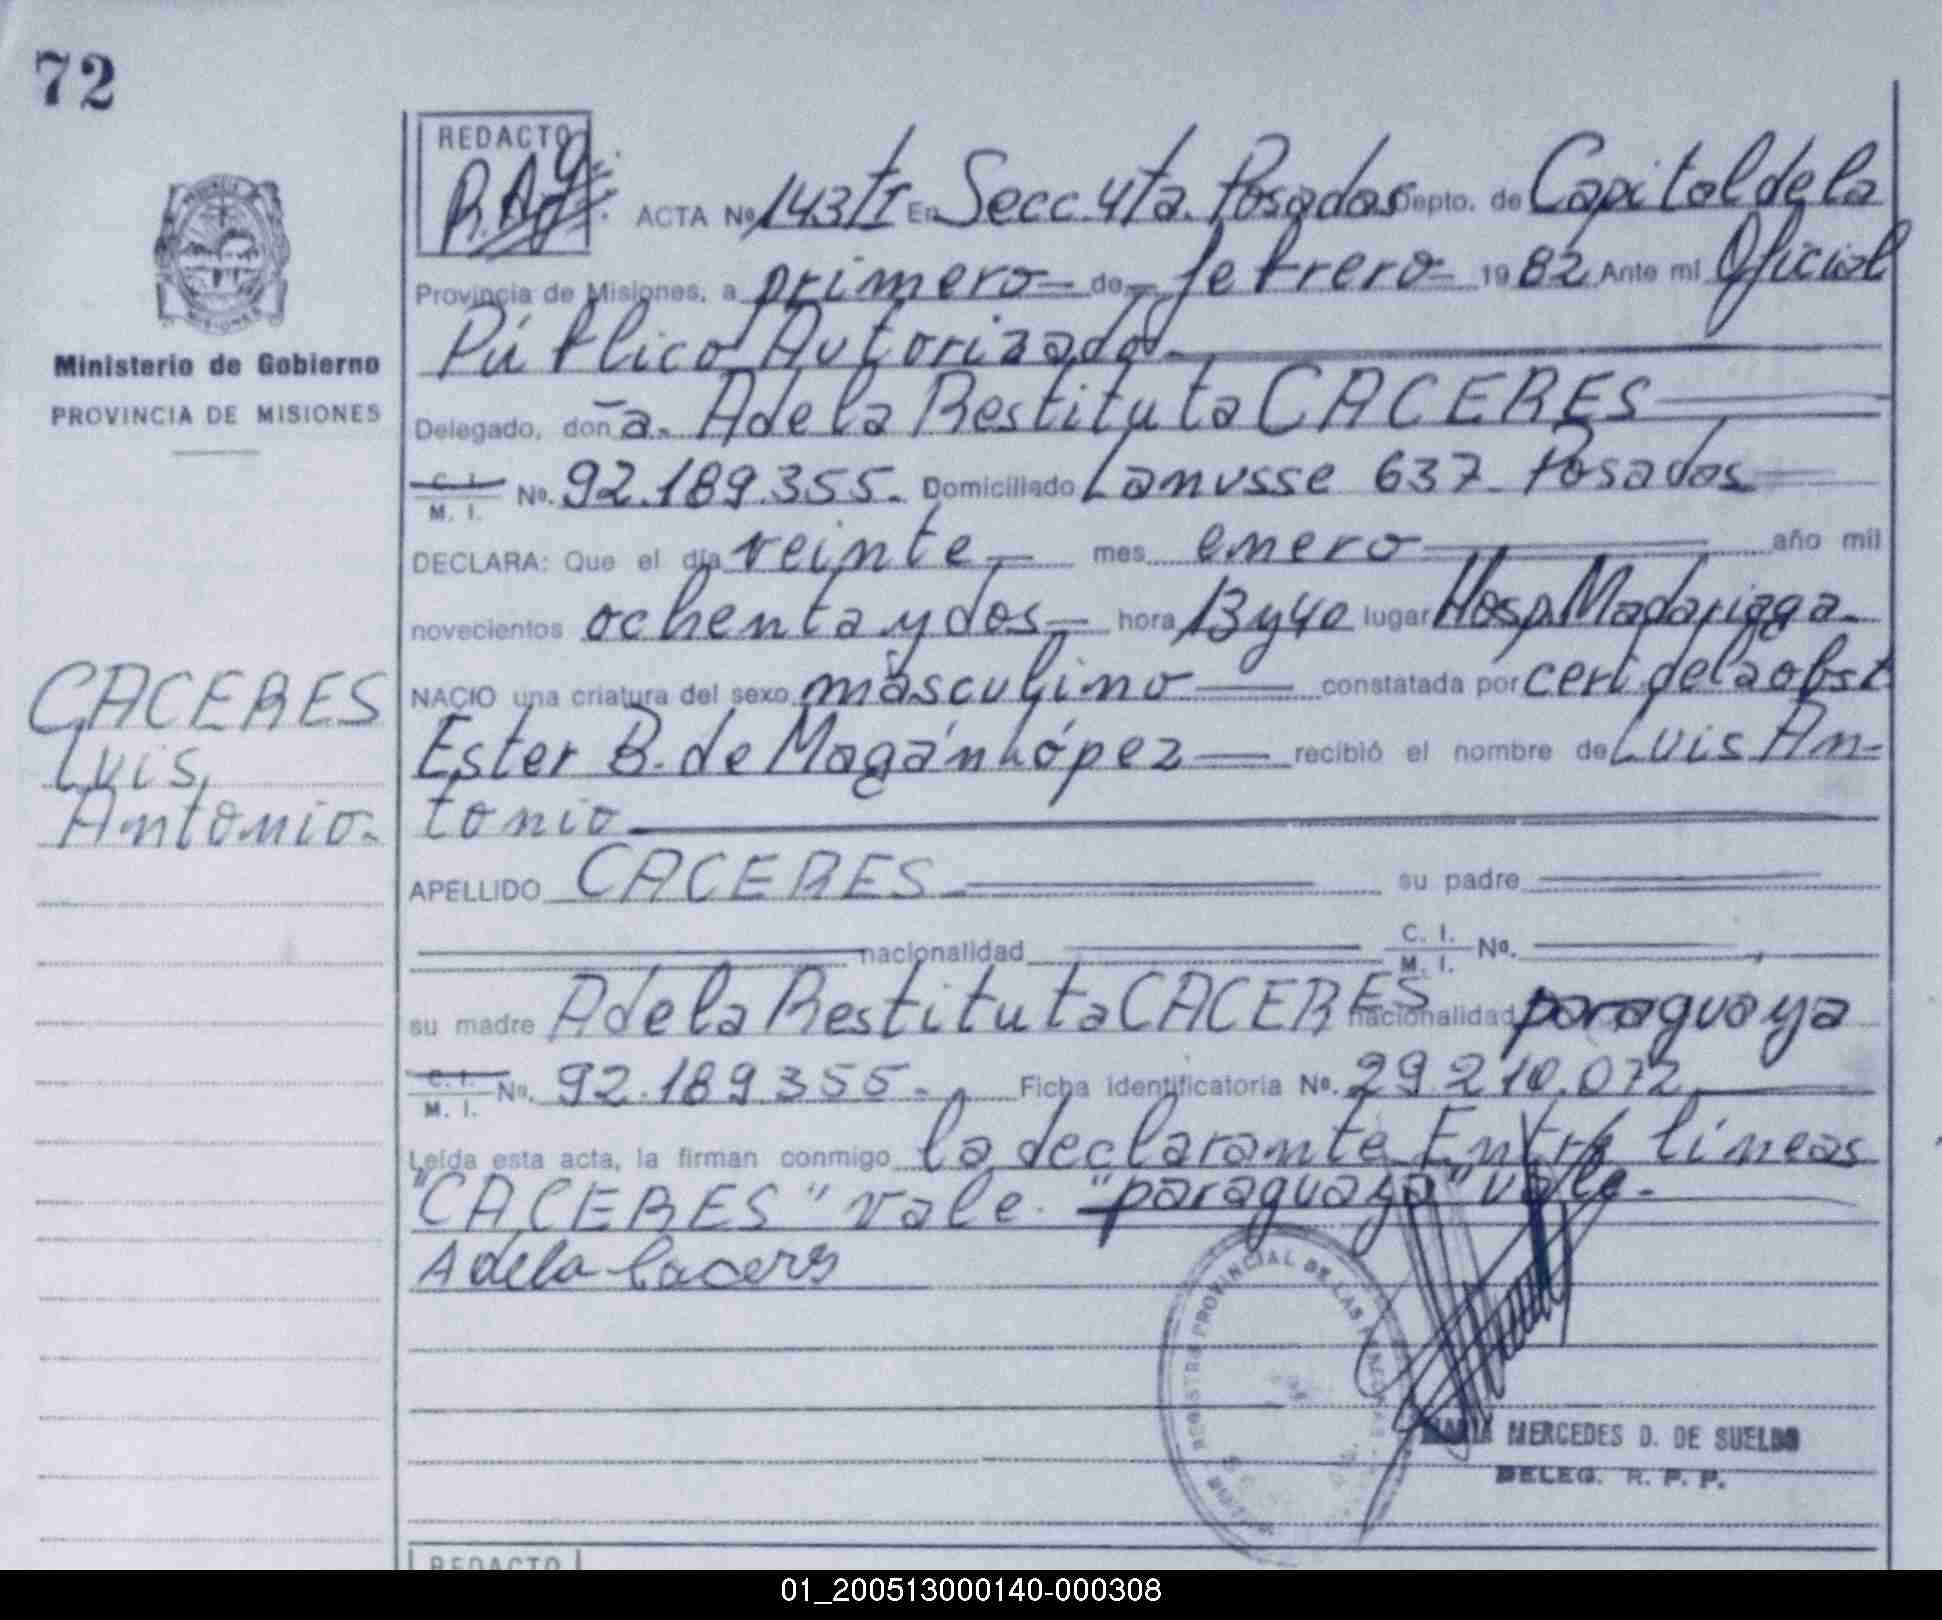 72
REDACTO
ACTA Nº 143 tI En Secc. 4ta. Posadas Depto. de Capital de la
Provincia de Misiones, a primero de febrero 1982 Ante mi Oficial
Público Autorizado
Delegado, doña. Adela Restituta CACERES
C. I. M. I. No. 92.189.355. Domiciliado Lanusse 637 Posadas
DECLARA: Que el día veinte mes enero año mil
novecientos ochenta y dos hora 13 y 40 lugar Hosp. Madariaga.
NACIO una criatura del sexo masculino constatada por cert. de la obst
Ester B. de Magán López recibió el nombre de Luis An-
tonio
APELLIDO CACERES su padre
nacionalidad C. I. M. I. No.
su madre Adela Restituta CACERES nacionalidad paraguaya
C. I. M. I. No. 92.189.355. Ficha identificatoria No. 29.210.072
Leída esta acta, la firman conmigo la declarante. Entre líneas
"CACERES" vale. "paraguaya" vale.
Adela Caceres
MISIONES
Ministerio de Gobierno
PROVINCIA DE MISIONES
CACERES
Luis,
Antonio.
REGISTRO PROVINCIAL DE LAS PERSONAS
MARIA MERCEDES D. DE SUELDO
DELEG. R. P. P.
REDACTO
01_200513000140-000308